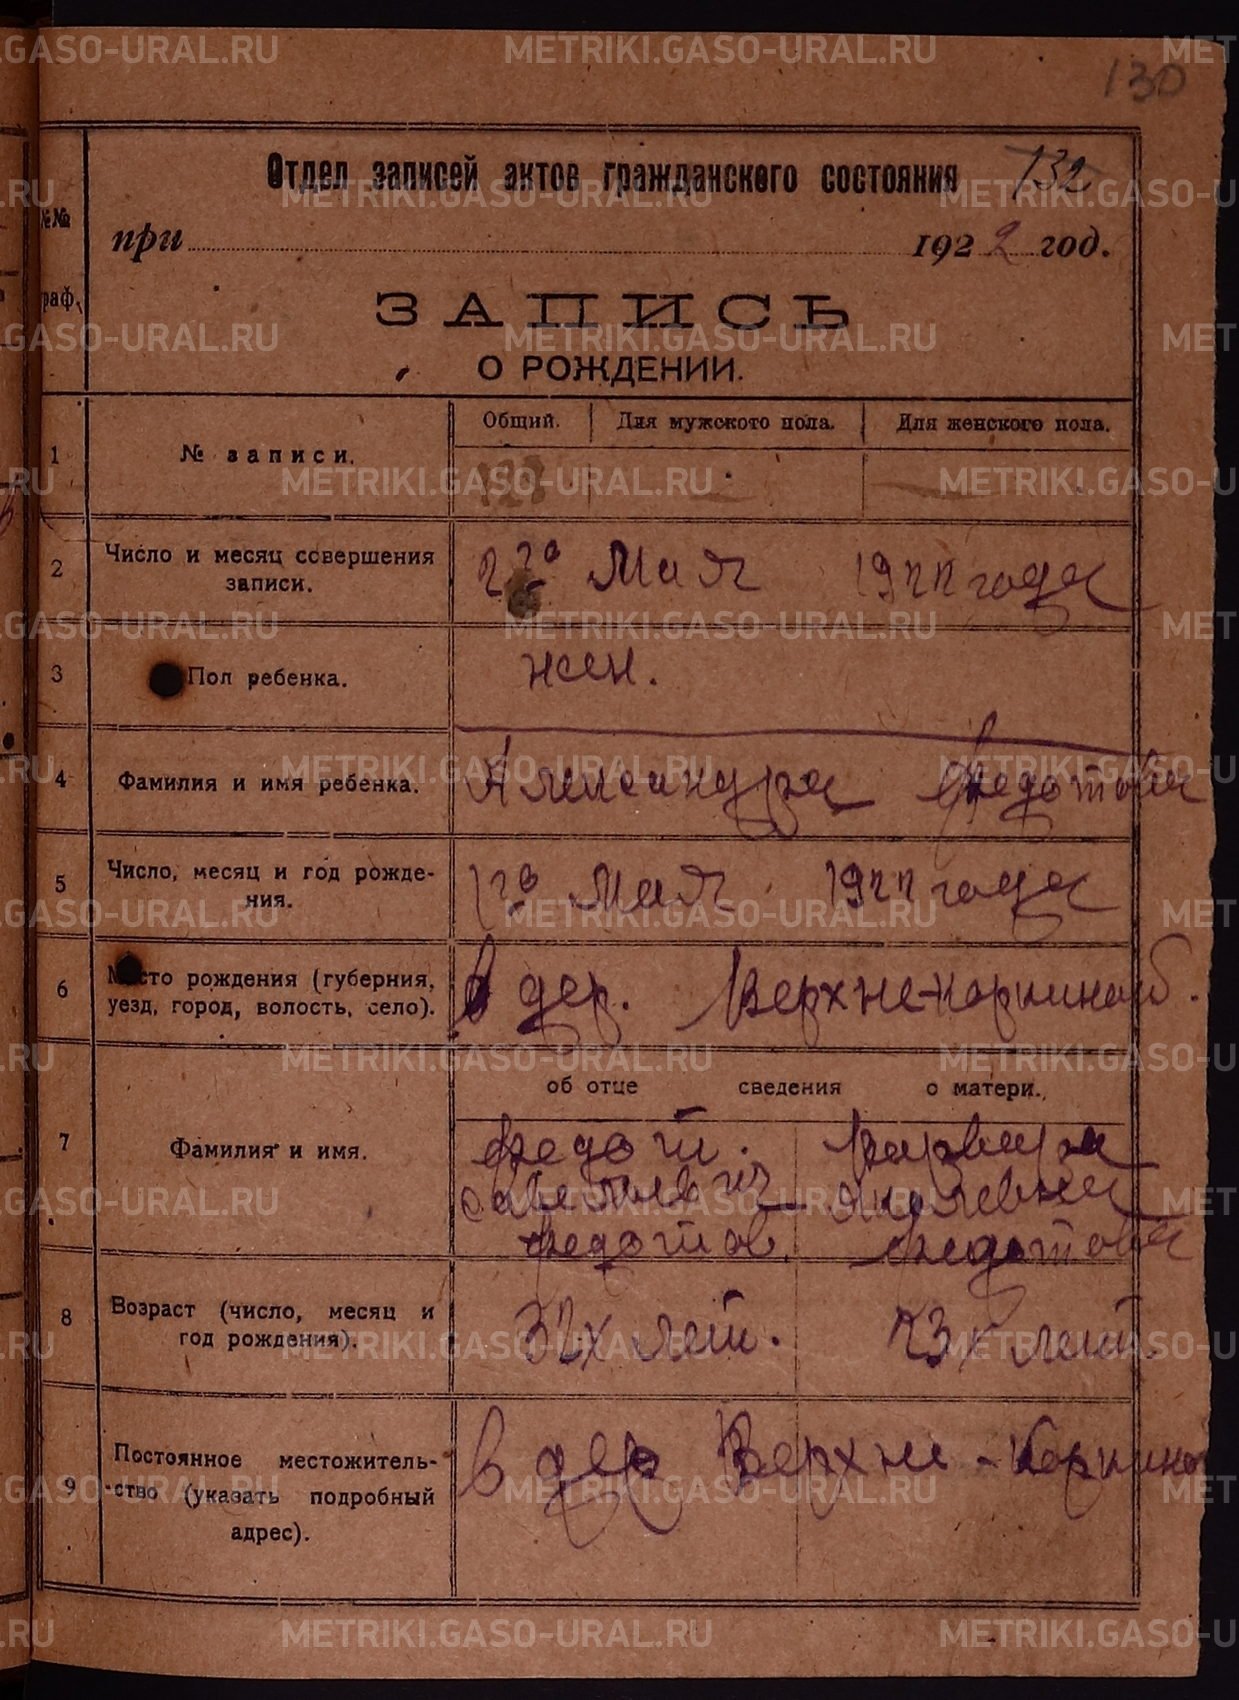 130
Отдел записей актов гражданского состояния 132
при 1922 год.
№№
граф.
ЗАПИСЬ
О РОЖДЕНИИ.
1 № записи. Общий. Для мужского пола. Для женского пола.
2 Число и месяц совершения записи. 22го Мая 1922 года
3 Пол ребенка. жен.
4 Фамилия и имя ребенка. Александра Федотова
5 Число, месяц и год рожде-
ния. Мая 1922 года
6 Место рождения (губерния,
уезд, город, волость, село). В дер. Верхне-Коркиной.
об отце сведения о матери.
7 Фамилия и имя. Федот. Варвара
Савельевич
Федотов. Федотова
8 Возраст (число, месяц и
год рождения). 32х лет. 23х лет.
9 Постоянное местожитель-
ство (указать подробный
адрес). в дер Верхне-Коркиной
METRIKI.GASO-URAL.RU